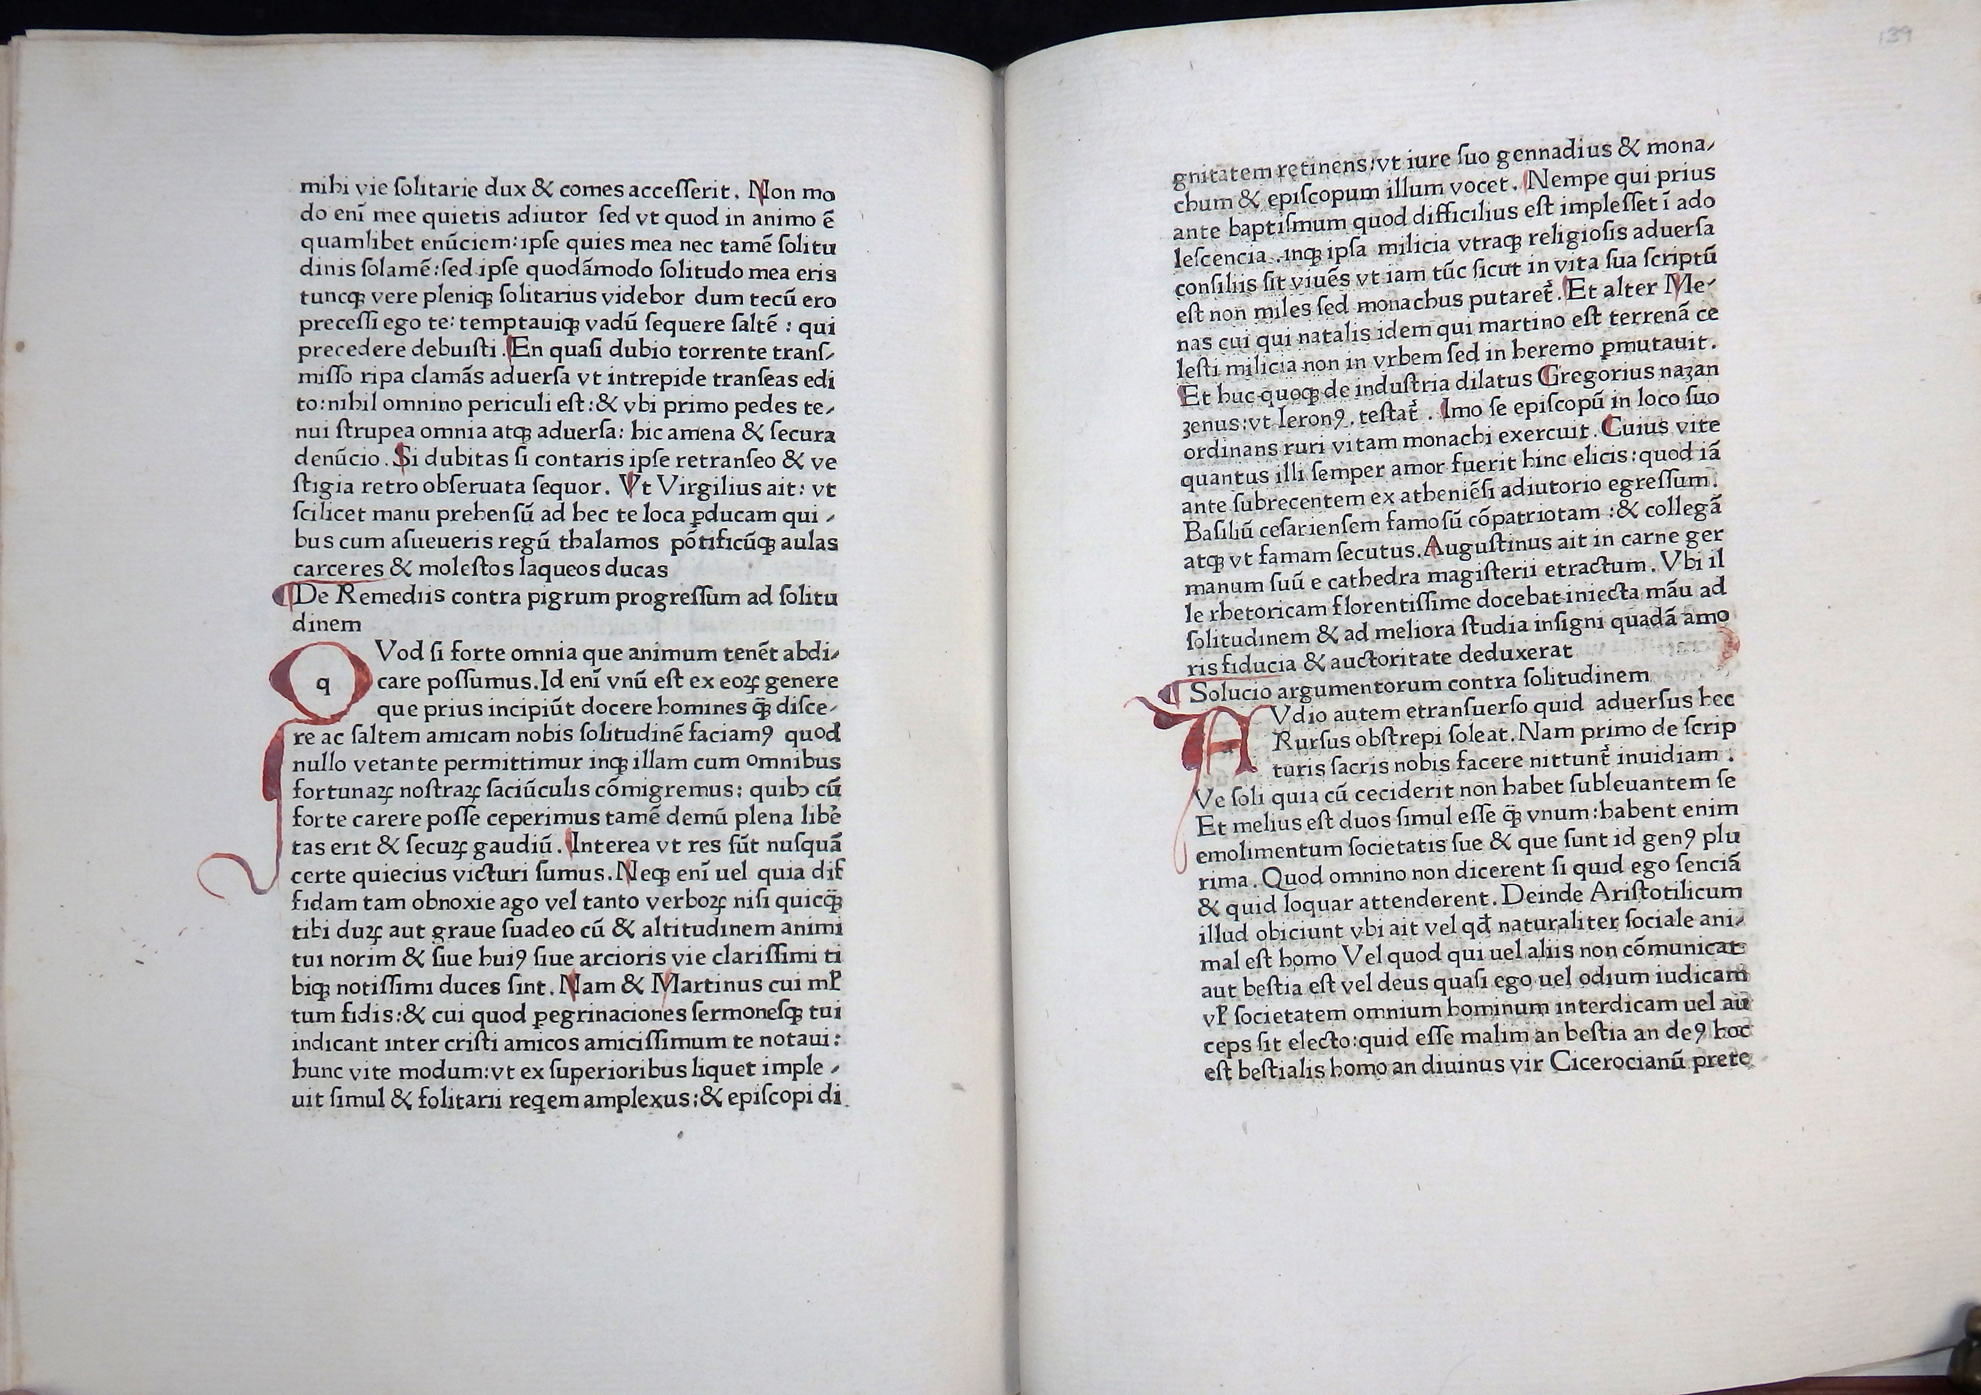 mihi vie ſolitarie dux & comes acceſſerit. Non mo
do enī mee quietis adiutor ſed vt quod in animo ē
quamlibet enūciem: ipſe quies mea nec tamē ſolitu
dinis ſolamē: ſed ipſe quodāmodo ſolitudo mea eris
tuncꝗ vere pleniqꝫ ſolitarius videbor dum tecū ero
preceſſi ego te: temptauiqꝫ vadū ſequere ſaltē : qui
precedere debuiſti. En quaſi dubio torrente tranſ⸗
miſſo ripa clamās aduerſa vt intrepide tranſeas edi
to: nihil omnino periculi eſt: & vbi primo pedes te⸗
nui ſtrupea omnia atqꝫ aduerſa: hic amena & ſecura
denūcio. Si dubitas ſi contaris ipſe retranſeo & ve
ſtigia retro obſeruata ſequor. Vt Virgilius ait: vt
ſcilicet manu prehenſū ad hec te loca ꝑducam qui⸗
bus cum aſueueris regū thalamos pōtificūqꝫ aulas
carceres & moleſtos laqueos ducas
De Remediis contra pigrum progreſſum ad ſolitu
dinem
q Vod ſi forte omnia que animum tenēt abdi⸗
care poſſumus. Id enī vnū eſt ex eoꝝ genere
que prius incipiūt docere homines ꝗ̄ꝫ diſce⸗
re ac ſaltem amicam nobis ſolitudinē faciamꝰ quod
nullo vetante permittimur inqꝫ illam cum omnibus
fortunaꝝ noſtraꝝ ſaciūculis cōmigremus: quibꝰ cū
forte carere poſſe ceperimus tamē demū plena libē
tas erit & ſecuꝝ gaudiū. Interea vt res ſūt nuſquā
certe quiecius victuri ſumus. Neqꝫ enī uel quia diſ
fidam tam obnoxie ago vel tanto verboꝝ niſi quicꝗ̄ꝫ
tibi duꝝ aut graue ſuadeo cū & altitudinem animi
tui norim & ſiue huiꝰ ſiue arcioris vie clariſſimi ti
biqꝫ notiſſimi duces ſint. Nam & Martinus cui ml̓
tum fidis: & cui quod ꝑegrinaciones ſermoneſqꝫ tui
indicant inter criſti amicos amiciſſimum te notaui:
hunc vite modum: vt ex ſuperioribus liquet imple⸗
uit ſimul & folitarii reqem amplexus: & epiſcopi di
139
gnitatem retinens: vt iure ſuo gennadius & mona⸗
chum & epiſcopum illum vocet. Nempe qui prius
ante baptiſmum quod difficilius eſt impleſſet ī ado
leſcencia. inqꝫ ipſa milicia vtraqꝫ religioſis aduerſa
conſiliis ſit viuēs vt iam tūc ſicut in vita ſua ſcriptū
eſt non miles ſed monachus putaret̄. Et alter Me⸗
nas cui qui natalis idem qui martino eſt terrenā ce
leſti milicia non in vrbem ſed in heremo ꝑmutauit.
Et huc quoqꝫ de induſtria dilatus Gregorius naʒan
ʒenus: vt Ieronꝰ. teſtat̄ . Imo ſe epiſcopū in loco ſuo
ordinans ruri vitam monachi exercuit. Cuius vite
quantus illi ſemper amor fuerit hinc elicis: quod iā
ante ſubrecentem ex atheniēſi adiutorio egreſſum.
Baſiliū ceſarienſem famoſū cōpatriotam : & collegā
atqꝫ vt famam ſecutus. Auguſtinus ait in carne ger
manum ſuū e cathedra magiſterii etractum. Vbi il
le rhetoricam florentiſſime docebat iniecta māu ad
ſolitudinem & ad meliora ſtudia inſigni quadā amo
ris fiducia & auctoritate deduxerat
Solucio argumentorum contra ſolitudinem
A Vdio autem etranſuerſo quid aduerſus hec
Rurſus obſtrepi ſoleat. Nam primo de ſcrip
turis ſacris nobis facere nittunt̄ inuidiam .
Ve ſoli quia cū ceciderit non habet ſubleuantem ſe
Et melius eſt duos ſimul eſſe ꝗ̄ꝫ vnum: habent enim
emolimentum ſocietatis ſue & que ſunt id genꝰ plu
rima. Quod omnino non dicerent ſi quid ego ſenciā
& quid loquar attenderent. Deinde Ariſtotilicum
illud obiciunt vbi ait vel qđ naturaliter ſociale ani⸗
mal eſt homo Vel quod qui uel aliis non cōmunicat
aut beſtia eſt vel deus quaſi ego uel odium iudicam
vl̓ ſocietatem omnium hominum interdicam uel au
ceps ſit electo: quid eſſe malim an beſtia an deꝰ hoc
eſt beſtialis homo an diuinus vir Cicerocianū prete